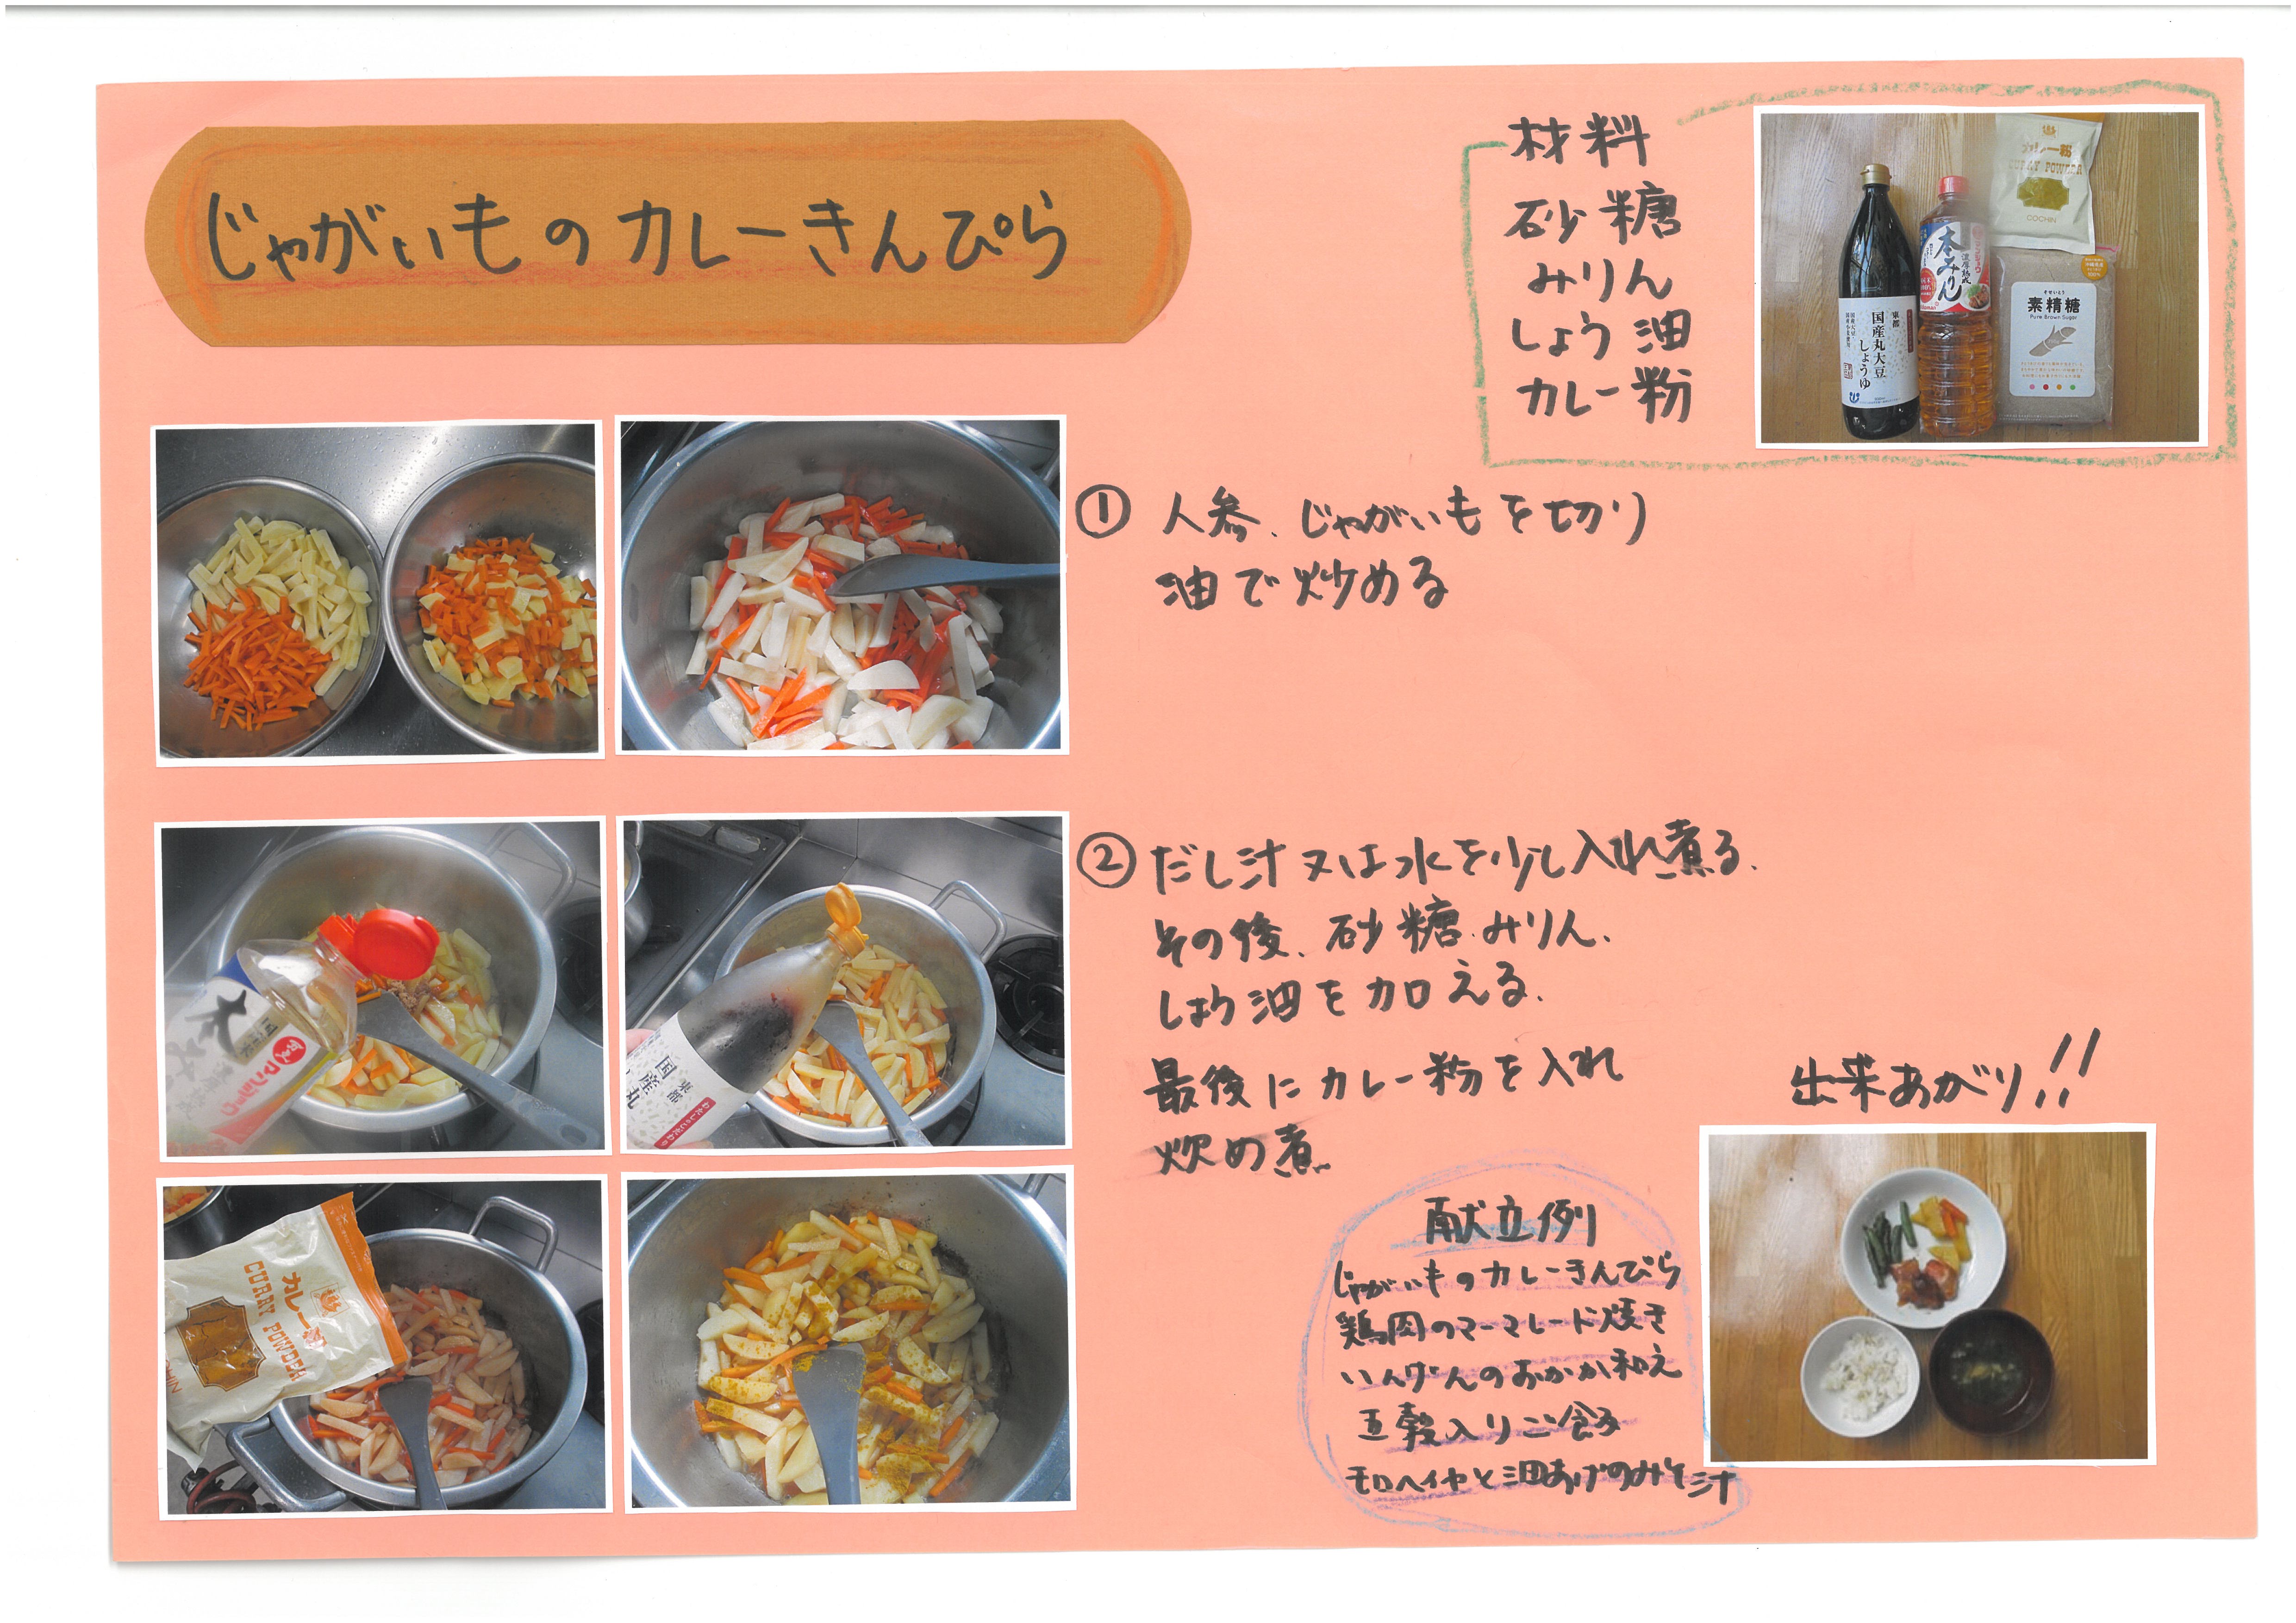 じゃがいものカレーきんぴら
材料
砂糖
みりん
しょう油
カレー粉
カレー粉
CURRY POWDER
COCHIN
本みりん
東都
国産丸大豆
しょうゆ
素精糖
Pure Brown Sugar
① 人参、じゃがいもを切り
油で炒める
② だし汁又は水を少し入れ煮る。
その後、砂糖、みりん、
しょう油を加える。
最後にカレー粉を入れ
炒め煮
マンジョウ
東都
国産丸
わたしのこだわり
カレー粉
CURRY POWDER
出来あがり!!
献立例
じゃがいものカレーきんぴら
鶏肉のマーマレード焼き
いんげんのおかか和え
五穀入りご飯
モロヘイヤと油あげのみそ汁